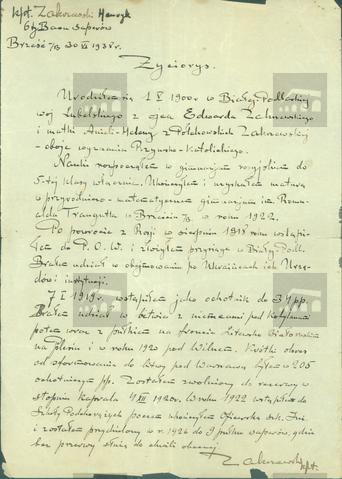 kpt. Zakrzewski Henryk
6ty Baon saperów
Brześć n/B 30 VI 1938 r.
Życiorys.
Urodziłem się 1 V 1900 r w Białej-Podlaskiej
woj Lubelskiego z ojca Edwarda Zakrzewskiego
i matki Anieli-Heleny z Zakrzewskiej
- oboje wyznania Rzymsko-Katolickiego.
Nauki rozpocząłem w gimnazjum rosyjskim do
5-tej klasy włącznie. Ukończyłem i uzyskałem maturę
w przyrodniczo-matematycznem gimnazjum im. Romu-
alda Traugutta w Brześciu n/B. w roku 1922.
Po powrocie z Rosji w sierpniu 1918 roku wstąpi-
łem do P.O.W. i złożyłem przysięgę w Białej-Podl.
Brałem udział w obejmowaniu po Ukraińcach ich Urzę-
dów i instytucji.
7 I 1919 r. wstąpiłem jako ochotnik do 34 pp.
Brałem udział w z niemcami pod
potem wraz z pułkiem na froncie Litewsko Białoruskim
na Polesiu i w roku 1920 pod Wilnem. Krótki okres
od sformowania do bitwy pod Warszawą byłem w 205
ochotniczym pp. Zostałem zwolniony do rezerwy w
stopniu kaprala 4 XII 1920 r. W roku 1922 wstąpiłem do
Szkoły Podchorążych poczem ukończyłem Oficerską szk. Inż
i zostałem przydzielony w r. 1924 do 9 pułku saperów, gdzie
bez przerwy służę do chwili obecnej.
Zakrzewski kpt.